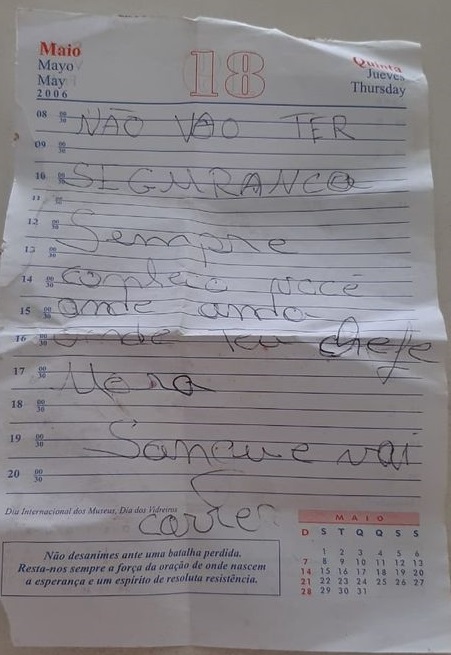 Maio
Mayo
May
2006
18
Quinta
Jueves
Thursday
08 00 30 NÃO VÃO TER
09 00 30
10 00 30 SEGURANCA
11 00 30
12 00 30 Sempre
13 00 30
14 00 30 você
15 00 30 onde anda
16 00 30 onde teu chefe
17 00 30 Mora
18 00 30
19 00 30 Sancue vai
20 00 30
correr
Dia Internacional dos Museus, Dia dos Vidreiros
Não desanimes ante uma batalha perdida.
Resta-nos sempre a força da oração de onde nascem
a esperança e um espírito de resoluta resistência.
MAIO
D S T Q Q S S
1 2 3 4 5 6
7 8 9 10 11 12 13
14 15 16 17 18 19 20
21 22 23 24 25 26 27
28 29 30 31